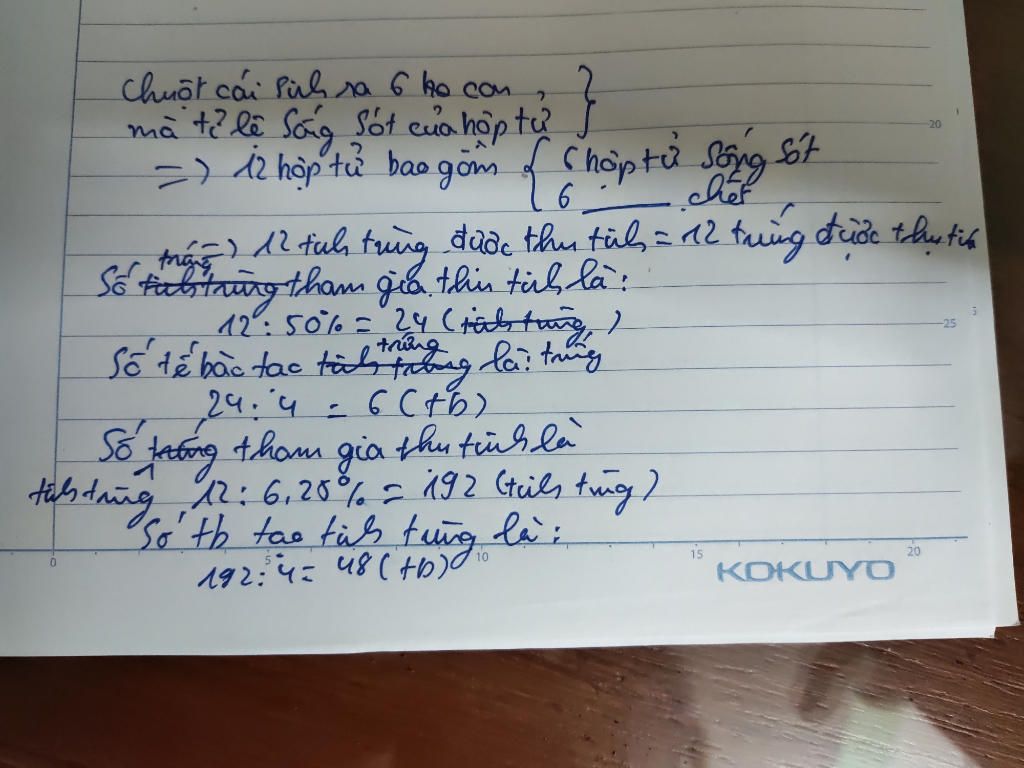 chuột cái sinh ra 6 con,
mà tỉ lệ sống sót của hợp tử
=> 12 hợp tử bao gồm { 6 hợp tử sống sót
6 ——— chết
=> 12 tinh trùng được thụ tinh = 12 trứng được thụ tinh
trứng
Số tinh trùng tham gia thụ tinh là:
12 : 50% = 24 (tinh trùng)
trứng
Số tế bào tạo tinh trùng là: trứng
24 : 4 = 6 (tb)
Số trứng tham gia thụ tinh là
tinh trùng 12 : 6,25% = 192 (tinh trùng)
Số tb tạo tinh trùng là:
192 : 4 = 48 (tb)
0 5 10 15 20
20
25
KOKUYO